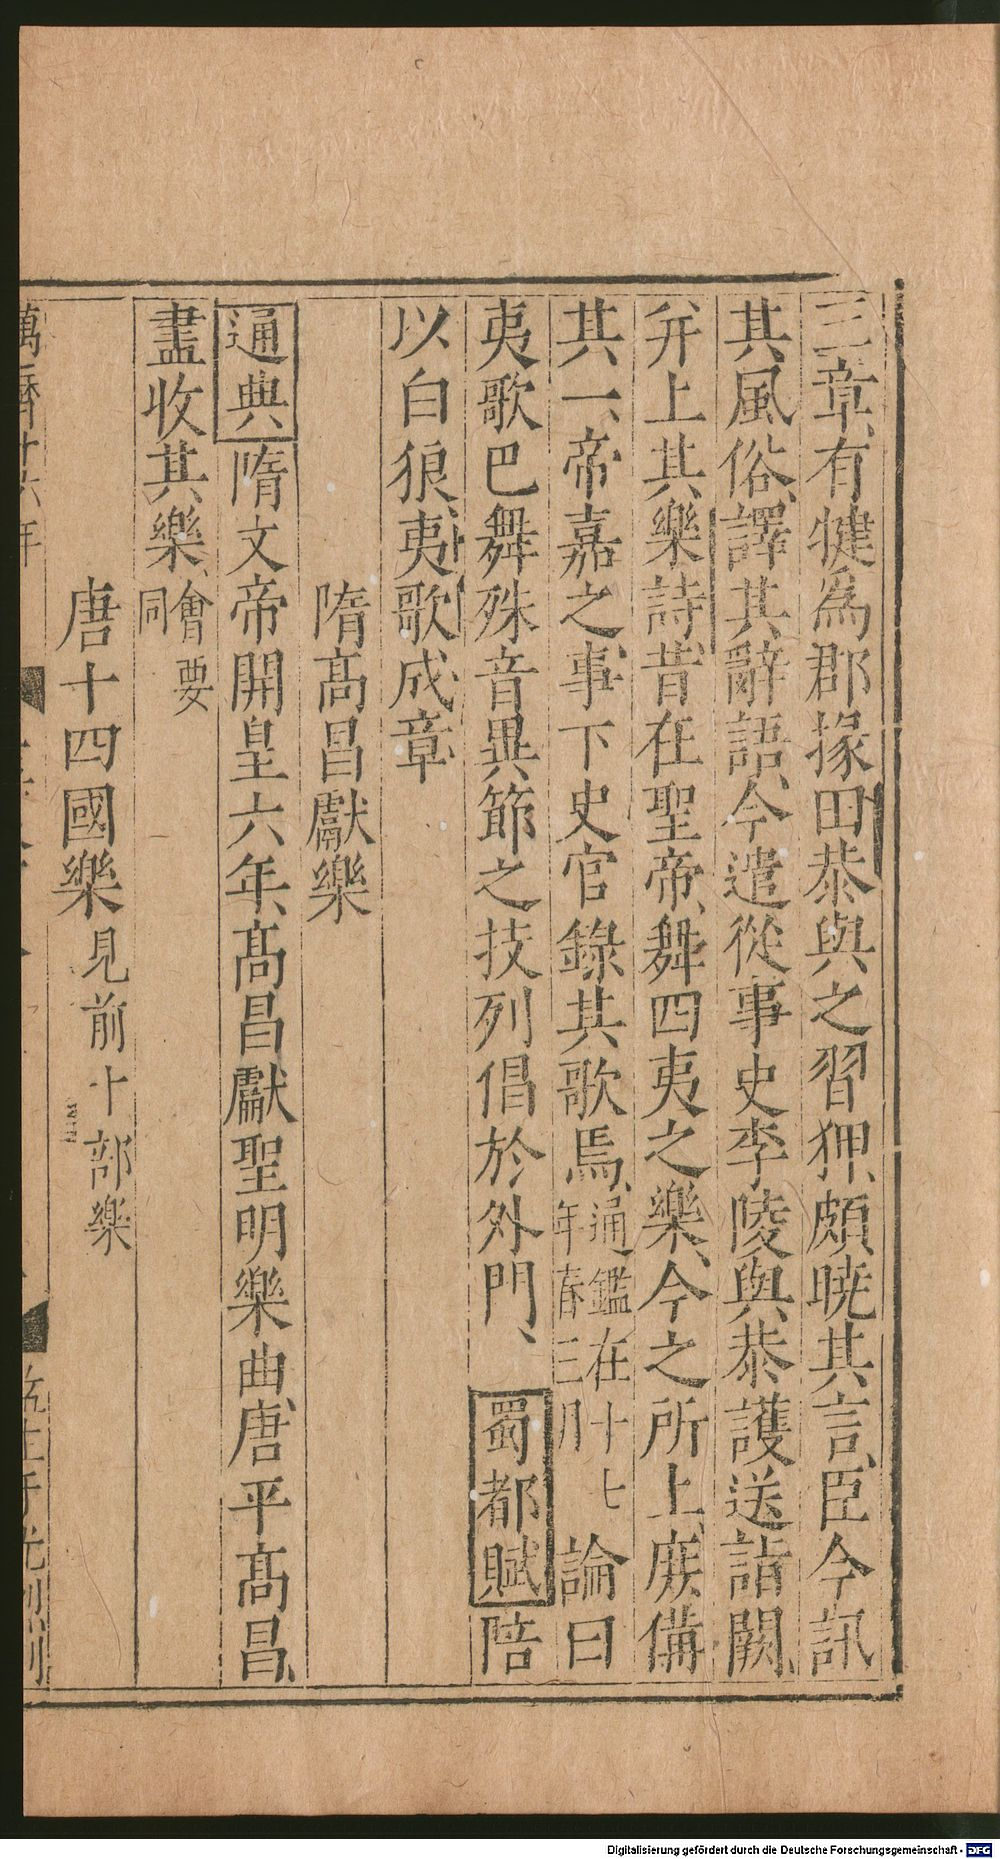 三章、有犍爲郡掾田恭與之習狎、頗曉其言、臣令訊
其風俗、譯其辭語、今遣從事史李陵與恭護送詣闕、
幷上其樂詩、昔在聖帝、舞四夷之樂、今之所上、庶備
其一、帝嘉之、事下史官錄其歌焉、通鑑在十七年春三月論曰
夷歌巴舞殊音異節之技列倡於外門、蜀都賦陪
以白狼、夷歌成章
隋高昌獻樂
通典隋文帝開皇六年、高昌獻聖明樂曲、唐平高昌、
盡收其樂、會要同
唐十四國樂見前十部樂
萬曆廿六年
Digitalisierung gefördert durch die Deutsche Forschungsgemeinschaft - DFG